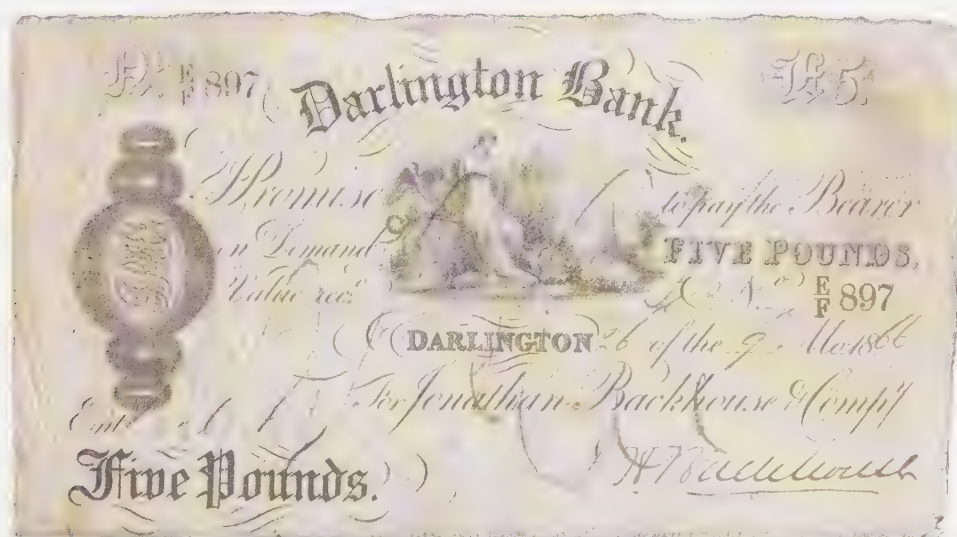 No. E/F 897 £5
Darlington Bank.
I Promise to pay the Bearer
on Demand FIVE POUNDS,
Value rec.d E/F 897
DARLINGTON 26 of the 9 Mo. 1866
For Jonathan Backhouse & Comp.y
Five Pounds.